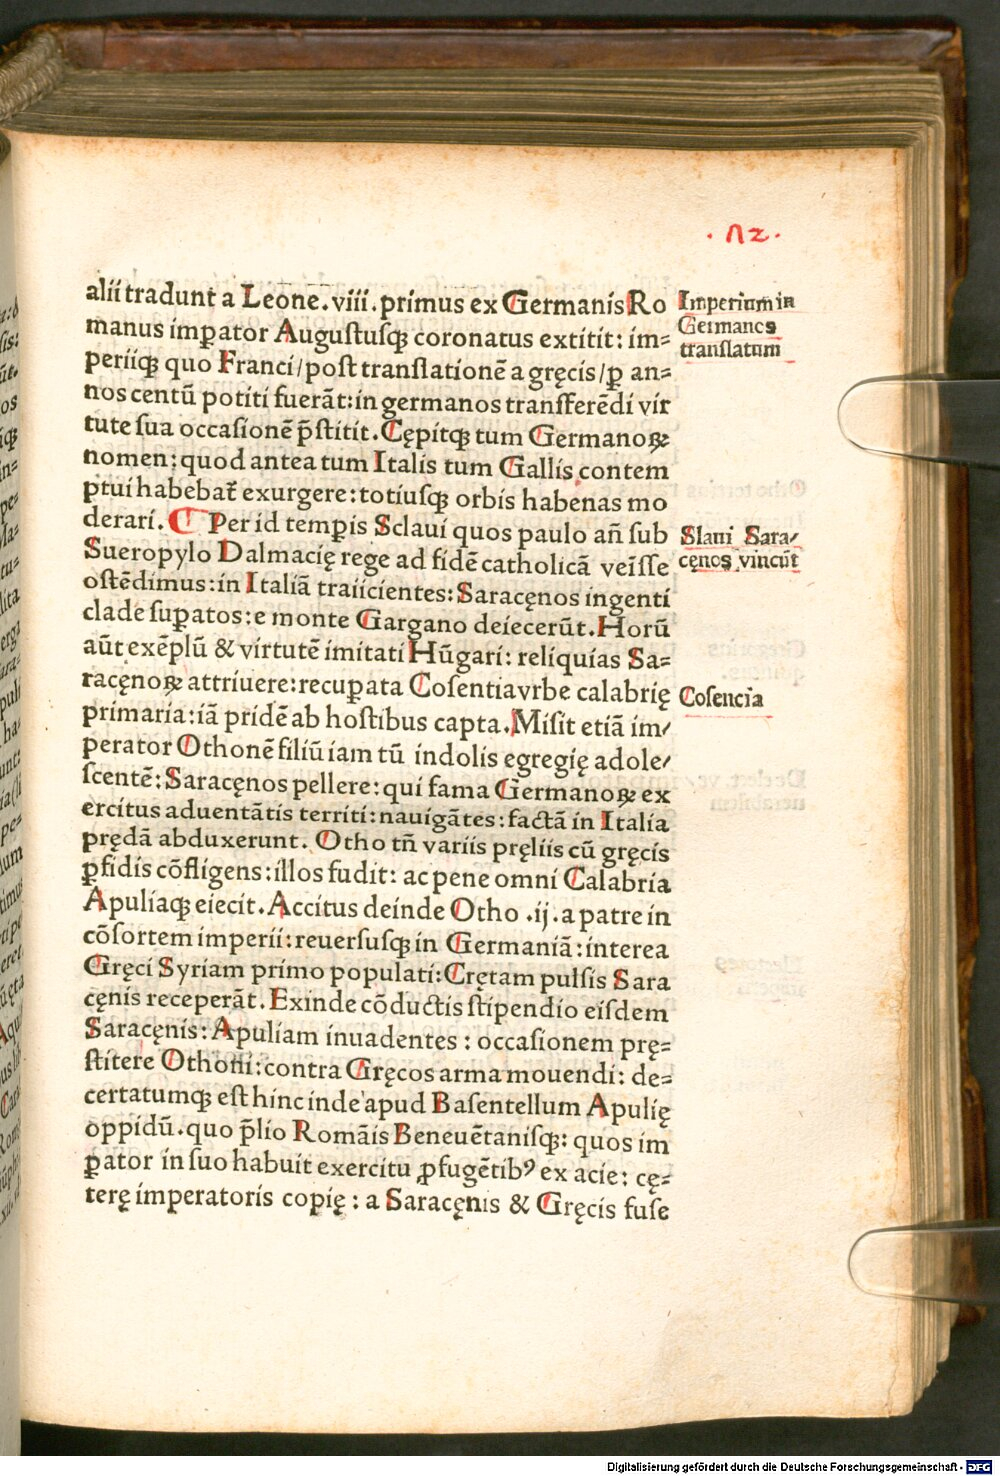 ·72·
alii tradunt a Leone.viii.primus ex Germanis Ro
manus imꝑator Augustusqꝫ coronatus extitit: im⸗
periiqꝫ quo Franci/post translationē a gręcis/ꝑ an⸗
nos centū potiti fuerāt:in germanos transferēdi vir
tute sua occasionē p̄stitit.Cępitqꝫ tum Germanoꝝ
nomen:quod antea tum Italis tum Gallis contem
ptui habebat̄ exurgere:totiusqꝫ orbis habenas mo
derari. ⸿ Per id temꝑis Sclaui quos paulo an̄ sub
Sueropylo Dalmacię rege ad fidē catholicā veisse
ostēdimus:in Italiā traiicientes:Saracęnos ingenti
clade suꝑatos:e monte Gargano deiecerūt.Horū
aūt exēplū & virtutē imitati Hūgari: reliquias Sa⸗
racęnoꝝ attriuere:recuꝑata Cosentia vrbe calabrię
primaria:iā pridē ab hostibus capta.Misit etiā im/
perator Othonē filiū iam tū indolis egregię adole/
scentē:Saracęnos pellere:qui fama Germanoꝝ ex
ercitus aduentātis territi:nauigātes:factā in Italia
prędā abduxerunt. Otho tn̄ variis pręliis cū gręcis
ꝑfidis cōfligens:illos fudit: ac pene omni Calabria
Apuliaqꝫ eiecit.Accitus deinde Otho .ij.a patre in
cōsortem imperii:reuersusqꝫ in Germaniā:interea
Gręci Syriam primo populati:Crętam pulsis Sara
cęnis receperāt.Exinde cōductis stipendio eisdem
Saracęnis:Apuliam inuadentes : occasionem prę⸗
stitere Othoni:contra Gręcos arma mouendi: de⸗
certatumqꝫ est hinc inde apud Basentellum Apulię
oppidū.quo p̄lio Romāis Beneuētanisqꝫ: quos im
ꝑator in suo habuit exercitu ꝓfugētibꝰ ex acie: cę⸗
terę imperatoris copię : a Saracęnis & Gręcis fuse
Imperium in
Germanos
translatum
Slaui Sara/
cęnos vincūt
Cosencia
Digitalisierung gefördert durch die Deutsche Forschungsgemeinschaft - DFG